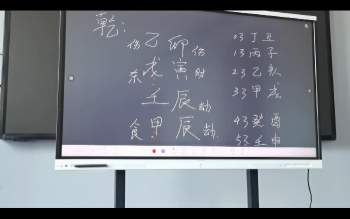 乾：
伤 乙 卯 伤
杀 戊 寅 财
壬 辰 劫
食 甲 辰 劫
03 丁 丑
13 丙 子
23 乙 亥
33 甲 戌
43 癸 酉
53 壬 申